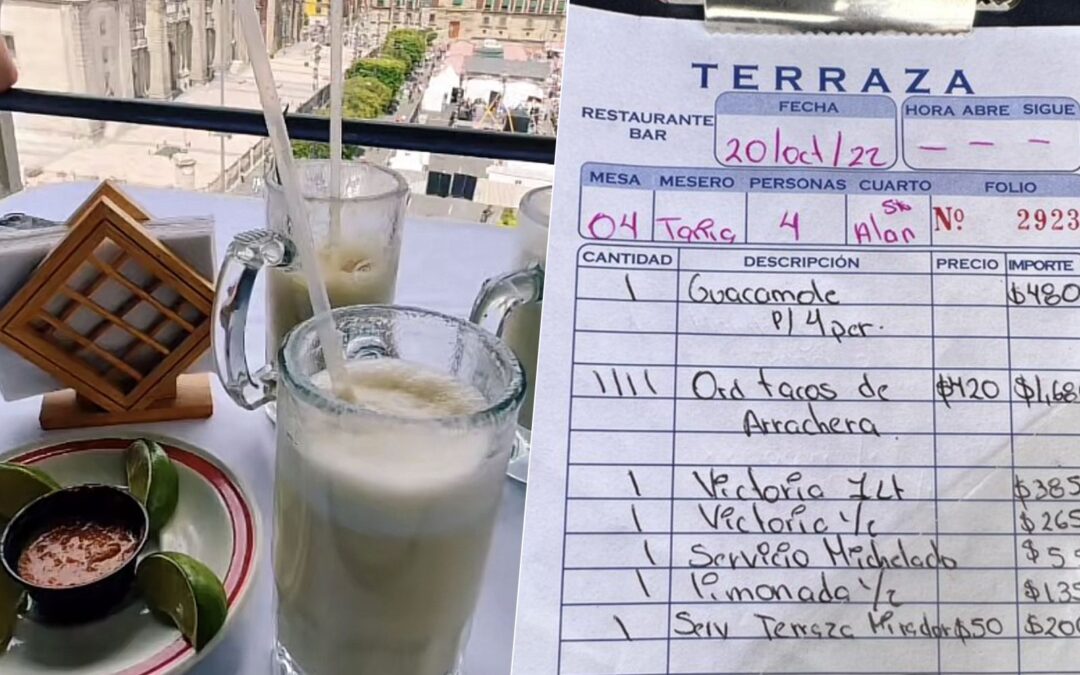 TERRAZA
RESTAURANTE BAR
FECHA
20/oct/22
HORA ABRE SIGUE
— — —
MESA MESERO PERSONAS CUARTO FOLIO
04 4 Alan Nº 2923
CANTIDAD DESCRIPCIÓN PRECIO IMPORTE
1 Guacamole $480
p/ 4 per.
1111 Ord tacos de $420 $1,68
Arrachera
1 Victoria 1Lt $385
1 Victoria 1/2 $265
1 Servicio Michelado $5
1 Limonada 1/2 $135
1 Serv Terraza Mirador $50 $200